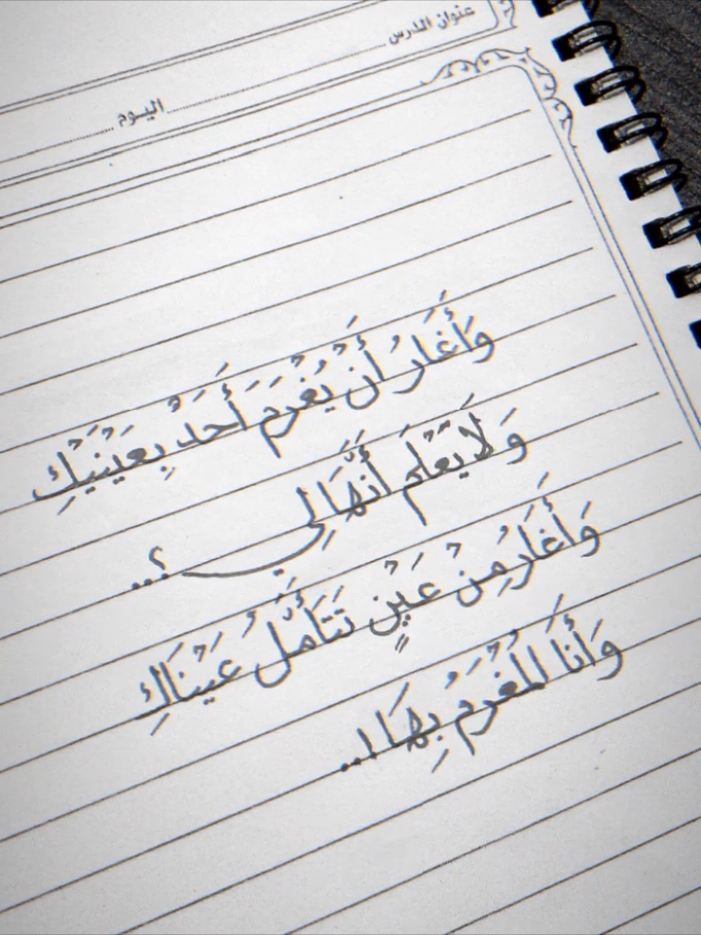 عنوان الدرس
اليـوم
وَأَغَارُ أَنْ يُغْرَمَ أَحَدٌ بِعَيْنَيْكِ
وَلَا يَعْلَم أَنَّهَا لِي ؟...
وَأَغَارُ مِنْ عَيْنٍ تَتَأَمَّلُ عَيْنَاكِ
وَأَنَا المُغْرَمُ بِهَا !..